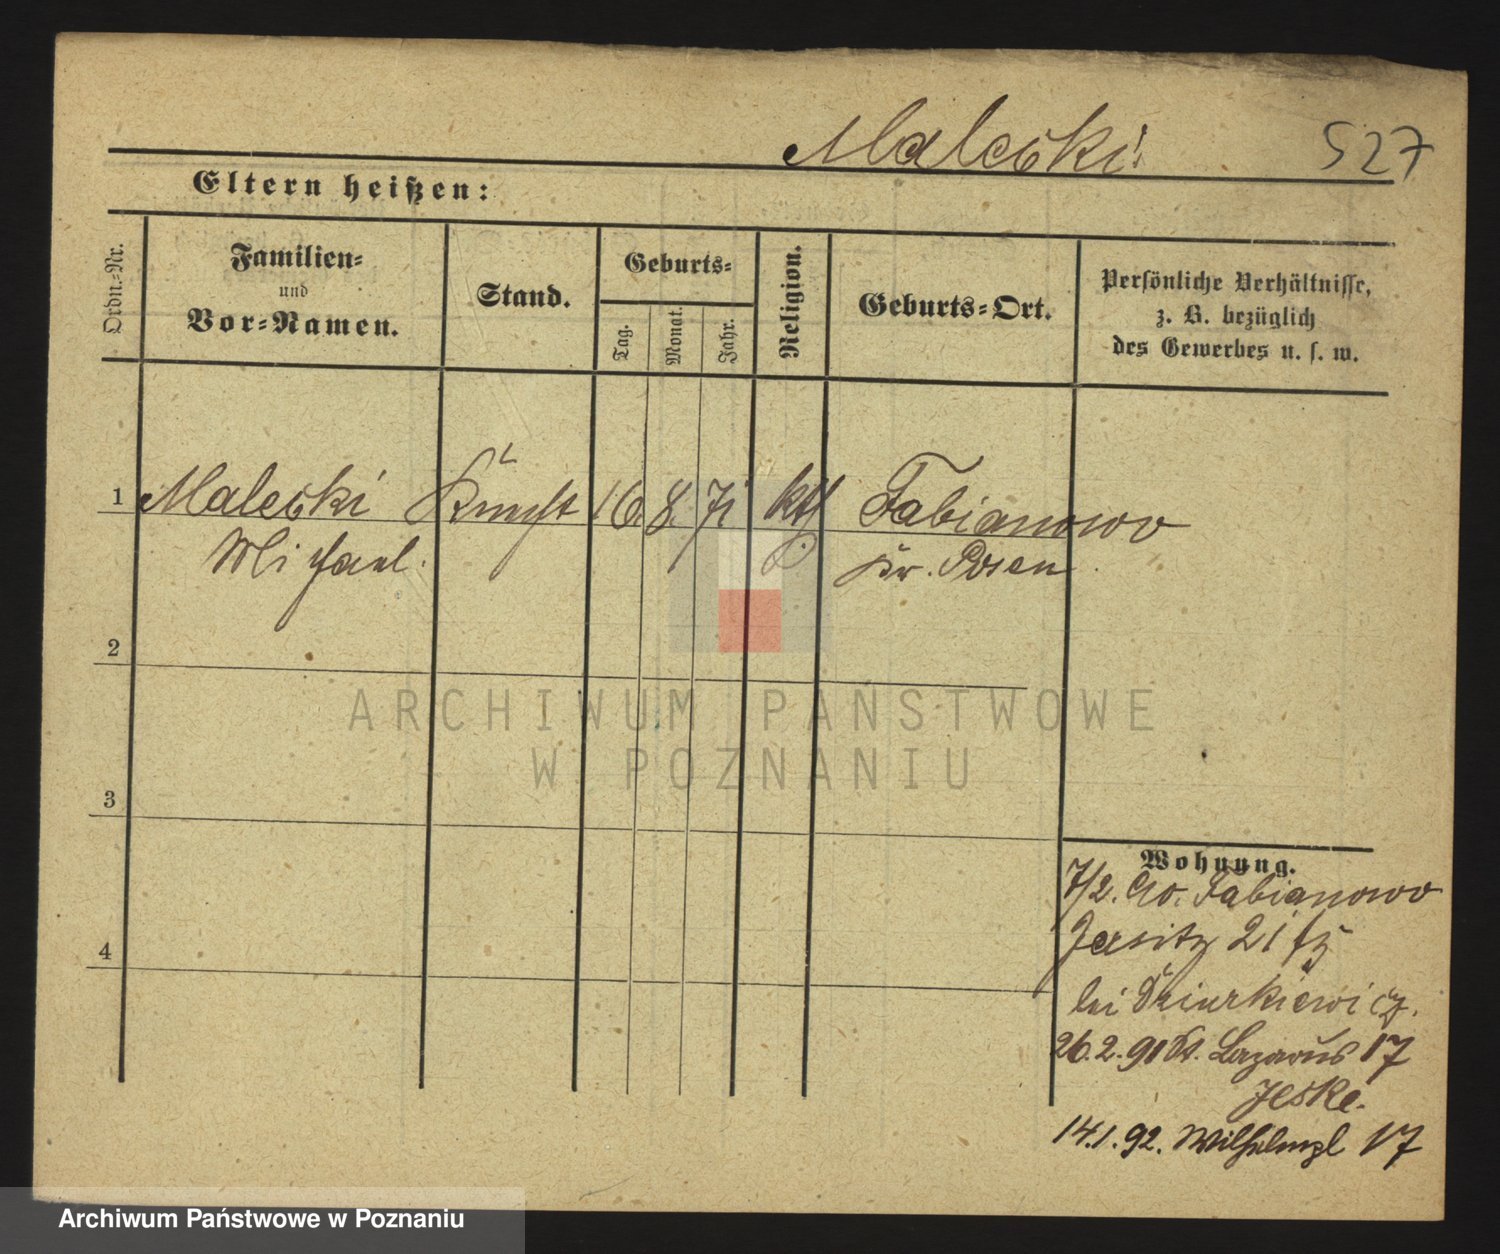 Malecki
527
Eltern heißen:
Ordn.-Nr.
Familien-
und
Vor-Namen.
Stand.
Geburts-
Tag.
Monat.
Jahr.
Religion.
Geburts-Ort.
Persönliche Verhältnisse,
z. B. bezüglich
des Gewerbes u. s. w.
1
Malecki
Knecht
16.
8.
71
kth
Fabianowo
Michael.
Kr. Posen
2
ARCHIWUM PAŃSTWOWE
W POZNANIU
3
4
Wohnung.
7/2. 90. Fabianowo
Jersitz 21
bei
26.2.91 St. Lazarus 17
Jeske.
14.1.92. Wilhelmpl 17
Archiwum Państwowe w Poznaniu